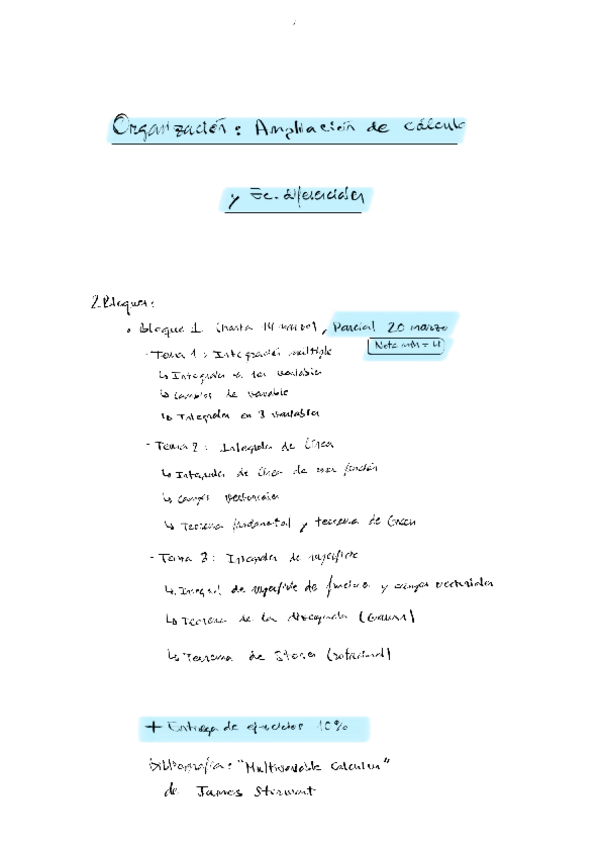 Organización: Ampliación de cálculo
y Ec. diferenciales
2 Bloques:
• Bloque 1 (hasta 14 marzo), Parcial 20 marzo
Nota mín = 4
- Tema 1: Integración múltiple
↳ Integrales
↳ Cambios de variable
↳ Integrales en 3 variables
- Tema 2: Integrales de línea
↳ Integrales de línea de una función
↳ Campos vectoriales
↳ Teorema fundamental y teorema de Green
- Tema 3: Integrales de superficie
↳ Integral de superficie de funciones y campos vectoriales
↳ Teorema de la divergencia (Gauss)
↳ Teorema de Stokes (rotacional)
+ Entrega de ejercicios 10%
Bibliografía: "Multivariable Calculus"
de James Stewart